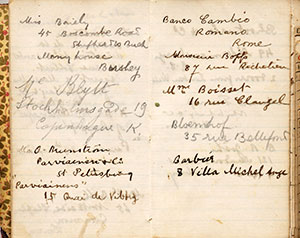 Miss Baily
45 Boscombe Road
Shepherds Bush
Moneyhouse
Burley
Klytt
Stockholmsgade 19
Copenhague K.
O. Brunström
Parviainen & Co
St Petersburg
Parviainens"
15 Quai de Vibbg
Banco Cambio
Romano.
Rome
Boppe
87 rue Richelieu
Mme Boisset
16 rue Clauzel
Bloemhof
35 rue Bellefond
Barbier
8 Villa Michel Ange